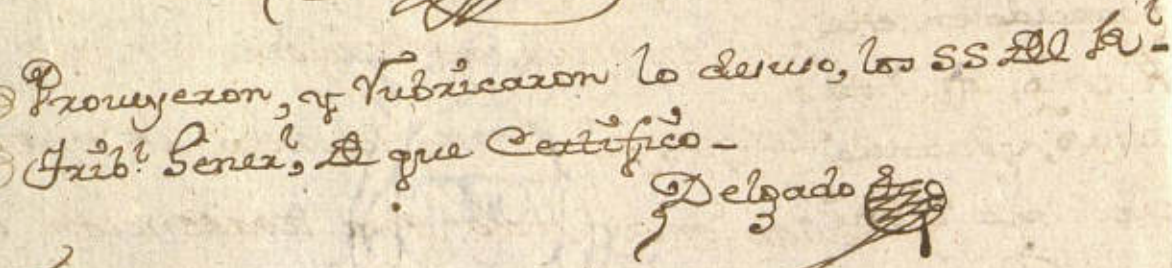 Proveyeron, y rubricaron lo desuso, los SS del Rl
Tribl. Generl, de que Certifico_
Delgado